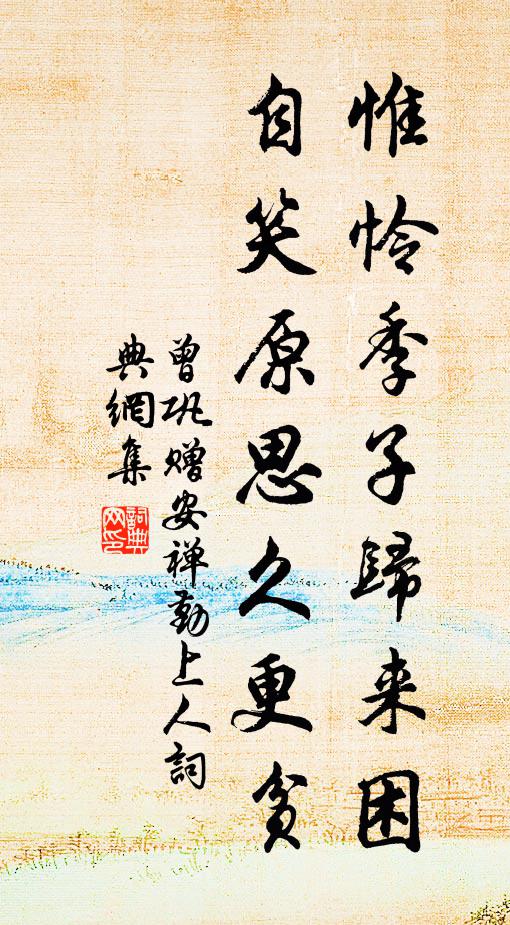 惟怜季子歸来困
自笑原思久更貧
曾巩赠安禅勤上人詞
典網集
詞典
网印